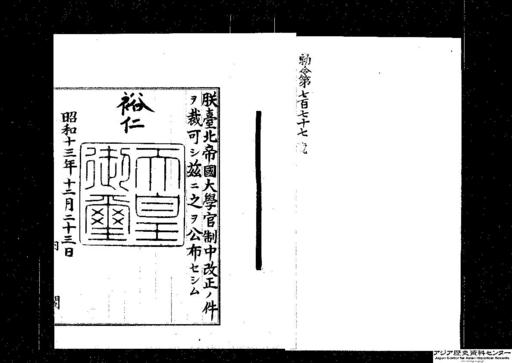 勅令第七百七十七號
朕臺北帝國大學官制中改正ノ件
ヲ裁可シ茲ニ之ヲ公布セシム
裕仁
天皇御璽
昭和十三年十二月二十三日
内閣
アジア歴史資料センター
Japan Center for Asian Historical Records